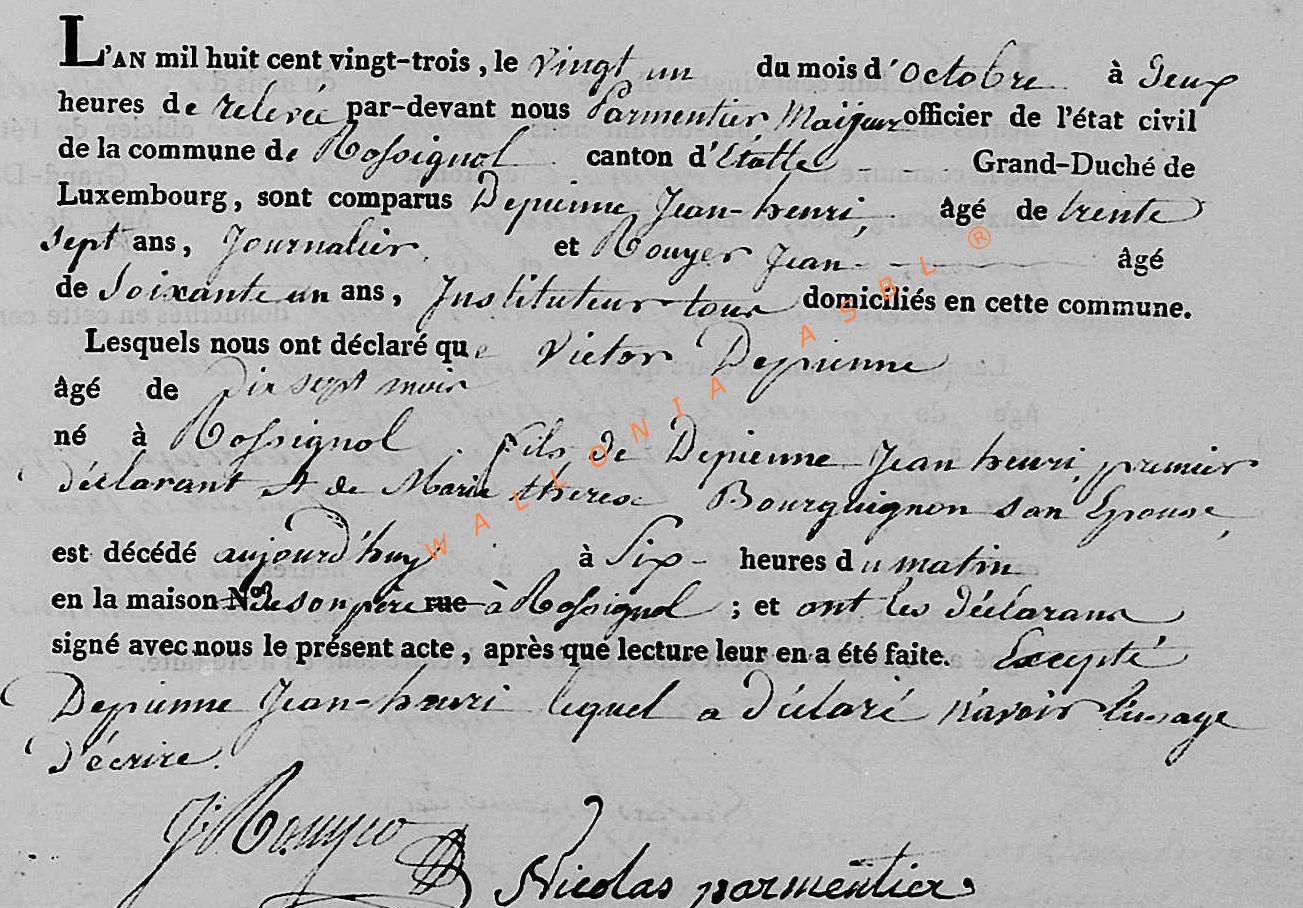 L'AN mil huit cent vingt-trois, le vingt un du mois d'octobre à Deux
heures de relevée par-devant nous Parmentier, Maijeur officier de l'état civil
de la commune de Rossignol canton d'Etalle Grand-Duché de
Luxembourg, sont comparus Depienne Jean-henri, âgé de trente
sept ans, Journalier. et Rouyer Jean âgé
de Soixante un ans, Instituteur tous domiciliés en cette commune.
Lesquels nous ont déclaré que Victor Depienne
âgé de dix sept mois
né à Rossignol fils de Depienne Jean henri, premier
déclarant et de Marie therese Bourguignon son Epouse,
est décédé aujourd'huy à Six heures du matin
en la maison N.os de son père rue à Rossignol ; et ont les déclarans
signé avec nous le présent acte, après que lecture leur en a été faite. Excepté
Depienne Jean-henri lequel a déclaré n'avoir l'usage
d'écrire.
J: Rouyer
Nicolas parmentier
WALLONIA ASBL ®